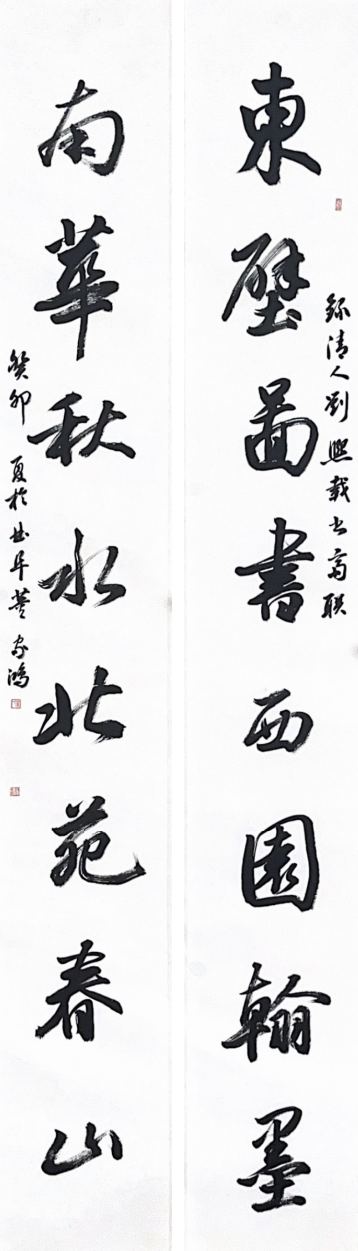 東壁圖書西園翰墨
錄清人劉熙載書齋联
南華秋水北苑春山
癸卯夏於曲阜 家鴻